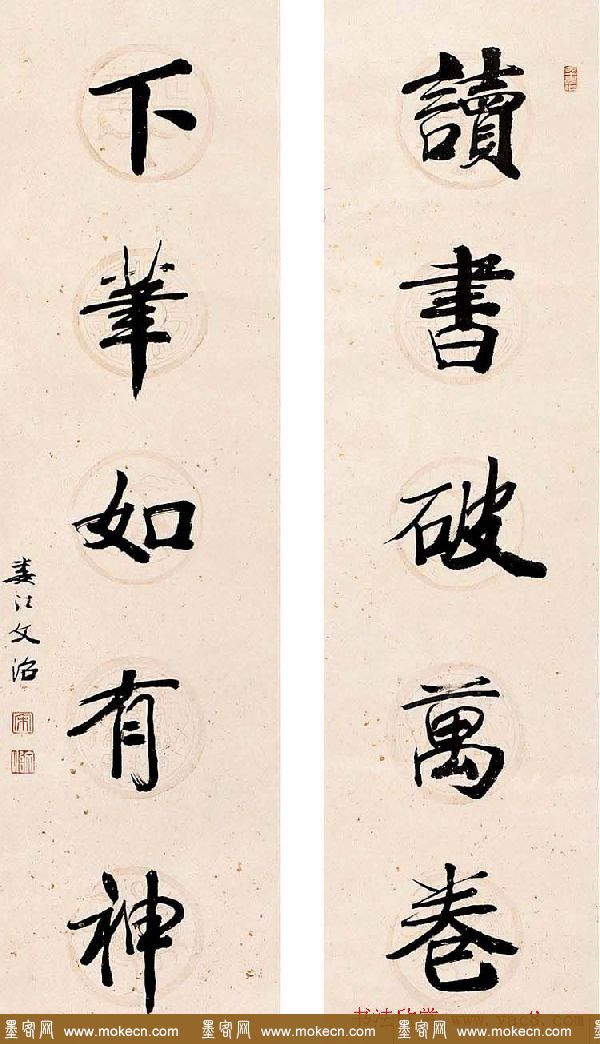 讀書破萬卷
下筆如有神
婁江文治
书法欣赏 www.
墨客网 www.mokecn.com 墨客网 www.mokecn.com 墨客网 www.mokecn.com